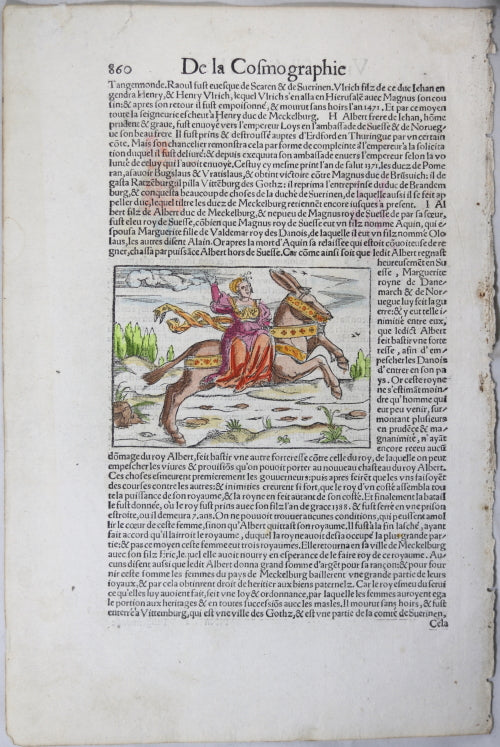 860 De la Cosmographie
Tangermonde. Raoul fust euesque de Searen & de Suerinen. Vlrich filz de ce duc Iehan en
gendra Henry, & Henry Vlrich, lequel Vlrich s'en alla en Hierusalē auec Magnus son cou
sin: & apres son retour il fust empoisonné, & mourut sans hoirs l'an 1471. Et par ce moyen
toute la seigneurie escheut à Henry duc de Meckelburg. H Albert frere de Iehan, hōme
prudent & graue, fust enuoyé vers l'empereur Loys en l'ambassade de Suesse & de Norueg
ue son beau frere. Il fust prins & destroussé aupres d'Erdfort en Thuringue par vn certain
côte, Mais son chancelier remonstra cela par forme de compleinte à l'empereur à la solicita
tion duquel il fust deliuré: & depuis executa son ambassade enuers l'empereur selon la vo
lunté de celuy qui l'auoit enuoyé. Cestuy cy mesme print l'an de salut 1371. les duc de Pome
ran, asauoir Bugslaus & Vratislaus, & obtint victoire côtre Magnus duc de Brüsuich: il de
gasta Ratzeburg: il pilla Vittēburg des Gothz: il reprima l'entreprise du duc de Brandem
burg, & conquesta beaucoup de choses de la duché de Suerinen, de laquelle aussi il se feit ap
peller duc, lequel tiltre les ducz de Meckelburg retiennēt encore iusques à present. I Al
bert filz de Albert duc de Meckelburg, & nepueu de Magnus roy de Suesse de par sa sœur,
fust eleu roy de Suesse, côbien que Magnus roy de Suesse eut vn filz nomme Aquin, qui es-
pousa Marguerite fille de Valdemar roy des Danois, de laquelle il eut vn filz nommé Olo
laus, les autres disent Alain. Or apres la mort d'Aquin sa relaissee qui estoit cōuoiteuse de re
gner, chassa par puissāce Albert hors de Suesse. Car côme ainsi soit que ledit Albert regnast
heureusemēt en Su
esse, Marguerite
royne de Dane-
march & de Nor-
uegue luy feit la gu
erre: & y eut telle i-
nimitié entre eux,
que ledict Albert
feit bastir vne forte
resse, afin d'em-
pescher les Danois
d'entrer en son pa
ys. Or ceste royne
ne s'estimāt moin-
dre qu'homme qui
eut peu venir, sur-
montant plusieurs
en prudēce & ma-
gnanimité, n'ayāt
encore receu aucū
dōmage du roy Albert, feit bastir vne autre forteresse côtre celle du roy, de laquelle on peut
empescher les viures & prouisiōs qu'on pouoit porter au nouueau chasteau du roy Albert.
Ces choses esmeurent premierement les gouuerneurs: puis apres feirēt que les vns faisoyēt
des courses contre les autres: & inimitiés creurent si fort, que le roy d'vn costé assembla tou
te la puissance de son royaume, & la royne en feit autant de son costé. Et finalement la batail
le fust donnée, où le roy fust prins auec son filz l'an de grace 1388. & fust serré en vne prison
estroite, ou il demeura 7. ans. On ne pouoit trouuer aucunes conditions, qui peussent amol
lir le cœur de ceste femme, sinon qu'Albert quittast son royaume. Il fust à la fin lasché, ayant
fait accord qu'il lairroit le royaume, duquel la royne auoit desia occupé la plus grande par-
tie: & par ce moyen ceste femme eut trois royaumes. Elle retourna en sa ville de Meckelburg
auec son filz Eric, lequel elle auoit nourry en esperance de le faire roy de ce royaume. Au-
cuns disent aussi que ledit Albert donna grand somme d'argēt pour sa rançon: & pour four
nir ceste somme les femmes du pays de Meckelburg baillerent vne grande partie de leurs
ioyaux, & par cela obtindrent droit de heritier aux biens paternelz. Car le roy esmeu du seruī
ce qu'elles luy auoient fait, feit vne loy & ordonnance, par laquelle les femmes auroyent ega
le portion aux heritages & en toutes successiōs auec les masles. Il mourut sans hoirs, & fust
enterré a Vittemburg, qui est vne ville des Gothz, & est vne partie de la comté de Suerinen,
Cela